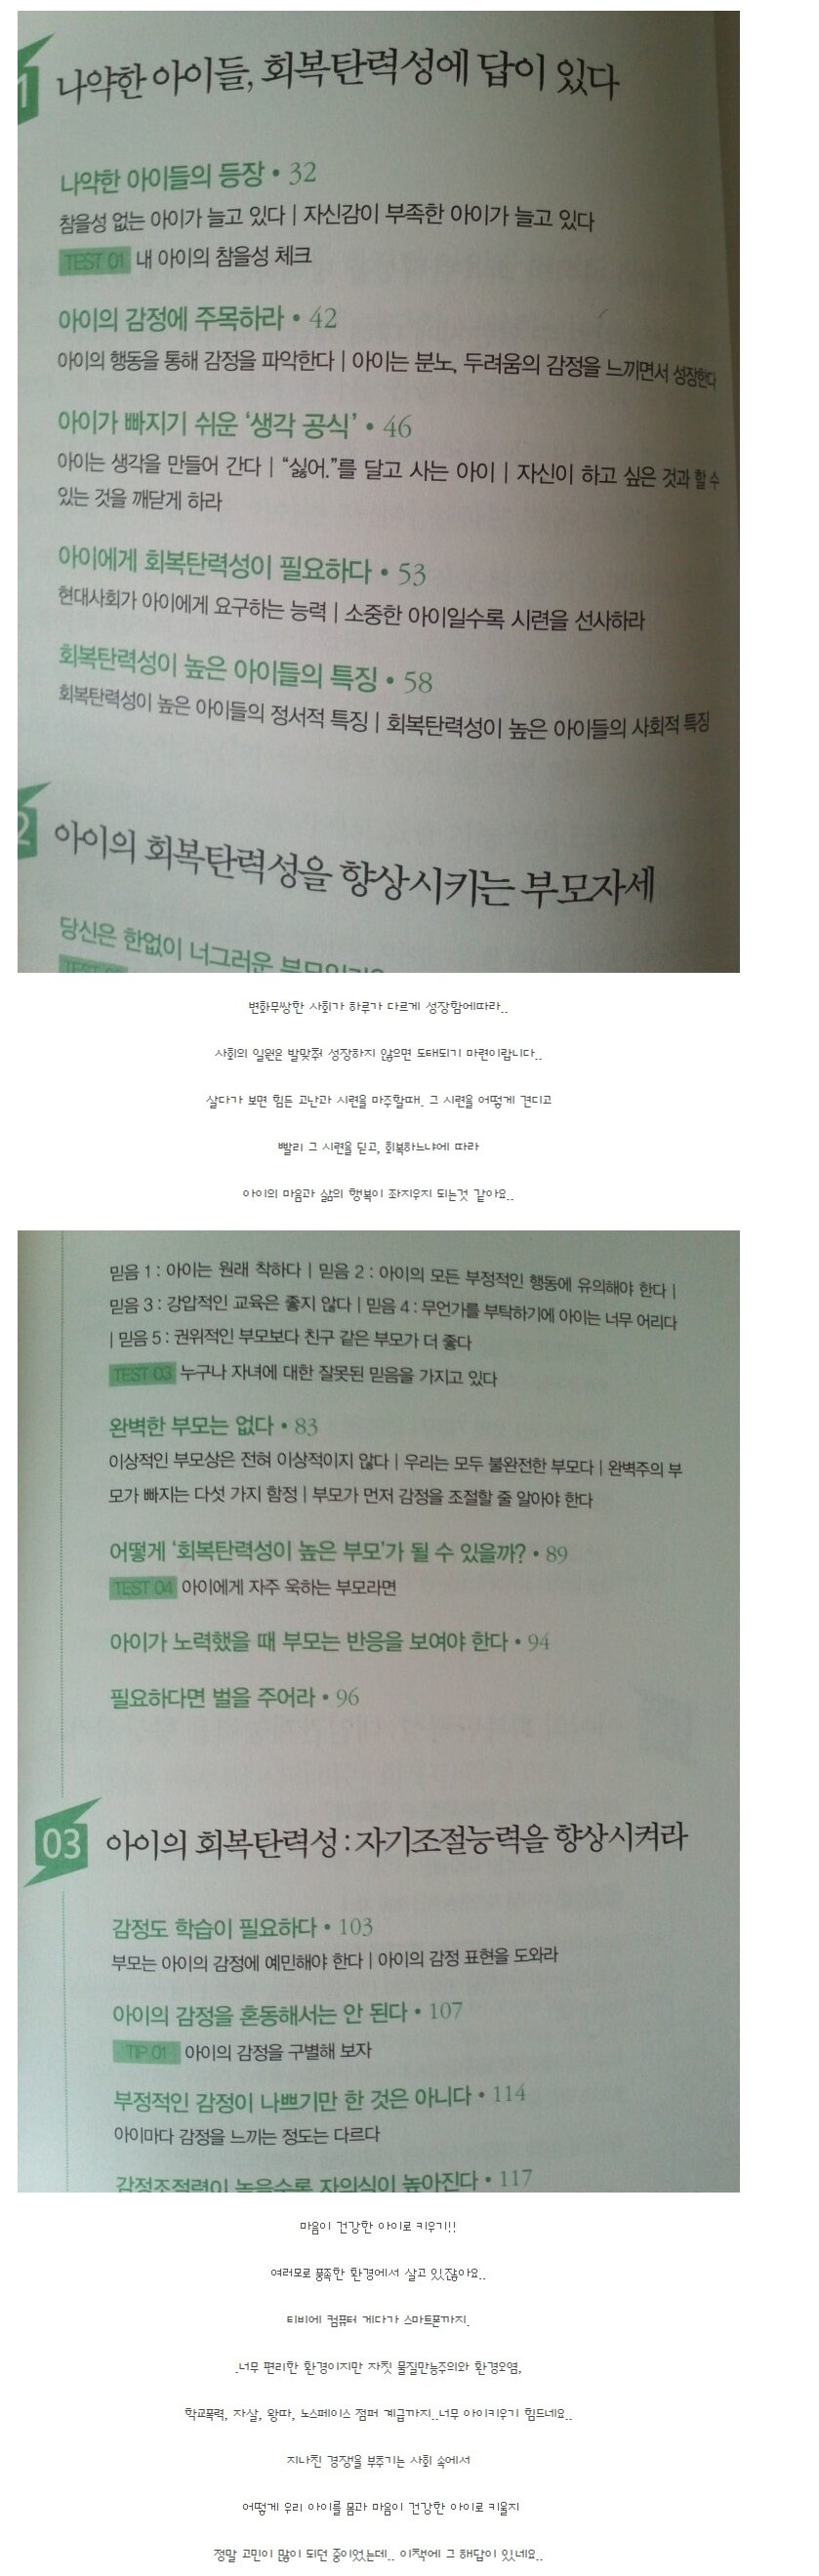 1 나약한 아이들, 회복탄력성에 답이 있다
나약한 아이들의 등장 • 32
참을성 없는 아이가 늘고 있다 | 자신감이 부족한 아이가 늘고 있다
TEST 01 내 아이의 참을성 체크
아이의 감정에 주목하라 • 42
아이의 행동을 통해 감정을 파악한다 | 아이는 분노, 두려움의 감정을 느끼면서 성장한다
아이가 빠지기 쉬운 ‘생각 공식’ • 46
아이는 생각을 만들어 간다 | “싫어.”를 달고 사는 아이 | 자신이 하고 싶은 것과 할 수
있는 것을 깨닫게 하라
아이에게 회복탄력성이 필요하다 • 53
현대사회가 아이에게 요구하는 능력 | 소중한 아이일수록 시련을 선사하라
회복탄력성이 높은 아이들의 특징 • 58
회복탄력성이 높은 아이들의 정서적 특징 | 회복탄력성이 높은 아이들의 사회적 특징
2 아이의 회복탄력성을 향상시키는 부모자세
당신은 한없이 너그러운
변화무쌍한 사회가 하루가 다르게 성장함에따라..
사회의 일원은 발맞춰 성장하지 않으면 도태되기 마련이랍니다..
살다가 보면 힘든 고난과 시련을 마주할때. 그 시련을 어떻게 견디고
빨리 그 시련을 딛고, 회복하느냐에 따라
아이의 마음과 삶의 행복이 좌지우지 되는것 같아요..
믿음 1 : 아이는 원래 착하다 | 믿음 2 : 아이의 모든 부정적인 행동에 유의해야 한다 |
믿음 3 : 강압적인 교육은 좋지 않다 | 믿음 4 : 무언가를 부탁하기에 아이는 너무 어리다
| 믿음 5 : 권위적인 부모보다 친구 같은 부모가 더 좋다
TEST 03 누구나 자녀에 대한 잘못된 믿음을 가지고 있다
완벽한 부모는 없다 • 83
이상적인 부모상은 전혀 이상적이지 않다 | 우리는 모두 불완전한 부모다 | 완벽주의 부
모가 빠지는 다섯 가지 함정 | 부모가 먼저 감정을 조절할 줄 알아야 한다
어떻게 ‘회복탄력성이 높은 부모’가 될 수 있을까? • 89
TEST 04 아이에게 자주 욱하는 부모라면
아이가 노력했을 때 부모는 반응을 보여야 한다 • 94
필요하다면 벌을 주어라 • 96
03 아이의 회복탄력성 : 자기조절능력을 향상시켜라
감정도 학습이 필요하다 • 103
부모는 아이의 감정에 예민해야 한다 | 아이의 감정 표현을 도와라
아이의 감정을 혼동해서는 안 된다 • 107
TIP 01 아이의 감정을 구별해 보자
부정적인 감정이 나쁘기만 한 것은 아니다 • 114
아이마다 감정을 느끼는 정도는 다르다
감정조절력이 높을수록 자의식이 높아진다 • 117
마음이 건강한 아이로 키우기!!
여러모로 풍족한 환경에서 살고 있잖아요..
티비에 컴퓨터 게다가 스마트폰까지.
.너무 편리한 환경이지만 자칫 물질만능주의와 환경오염,
학교폭력, 자살, 왕따, 노스페이스 점퍼 계급까지..너무 아이키우기 힘드네요..
지나친 경쟁을 부추기는 사회 속에서
어떻게 우리 아이를 몸과 마음이 건강한 아이로 키울지
정말 고민이 많이 되던 중이었는데.. 이책에 그 해답이 있네요..